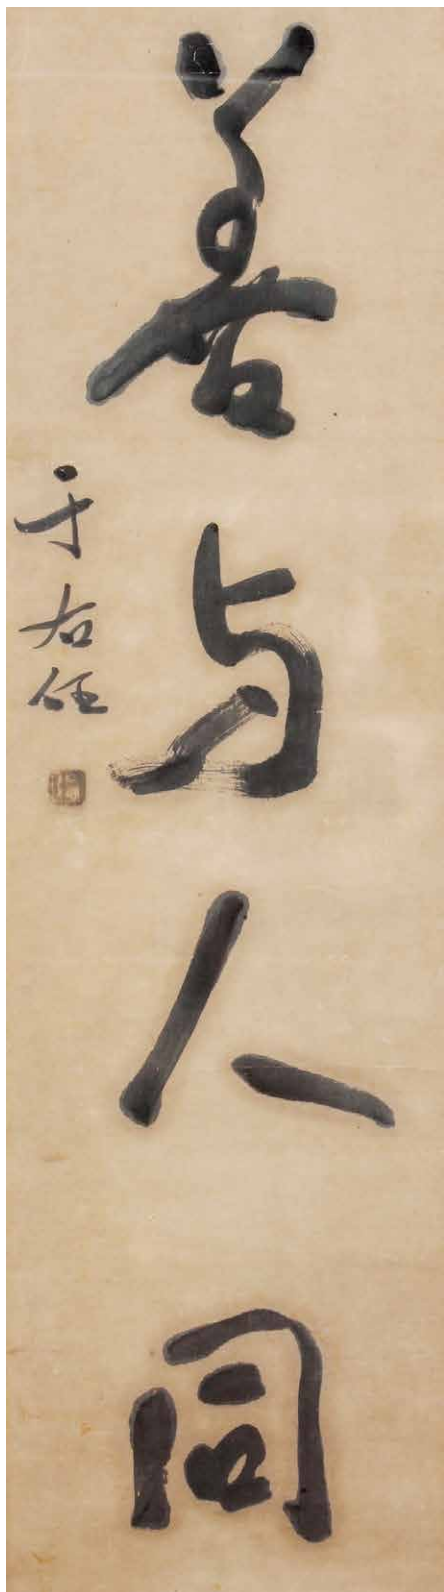 善与人同
于右任